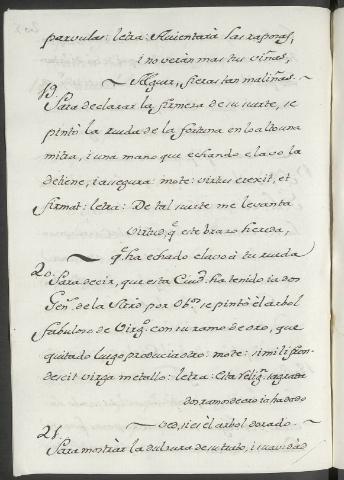 parvulas: letra: Auientarà las raposas,
i no veràn mas tus viñas,
Algunas fieras tan maliñas.
19. Para declarar la firmeza de su suerte, se
pintò la rueda de la fortuna en lo alto una
mitra, i una mano que echando clavo la
detiene, i assegura: mote: virtus erexit, et
firmat: letra: De tal suerte me levanta
virtud, q̃ este brazo heroda,
q̃ ha echado clavo à tu rueda
20. Para decir, que esta Ciud. ha tenido ia dos
Gen.s de la para por Ob.s se pintò el arbol
fabuloso de Virg.o con su ramo de oro, que
quitado luego producia otro: mote: simili fron-
descit virga metallo: letra: Esta Relig.n sagrada
dos ramos de oro ia ha dado
ved, si es el arbol dorado.
21. Para mostràr la dulzura de su trato, i suavidad